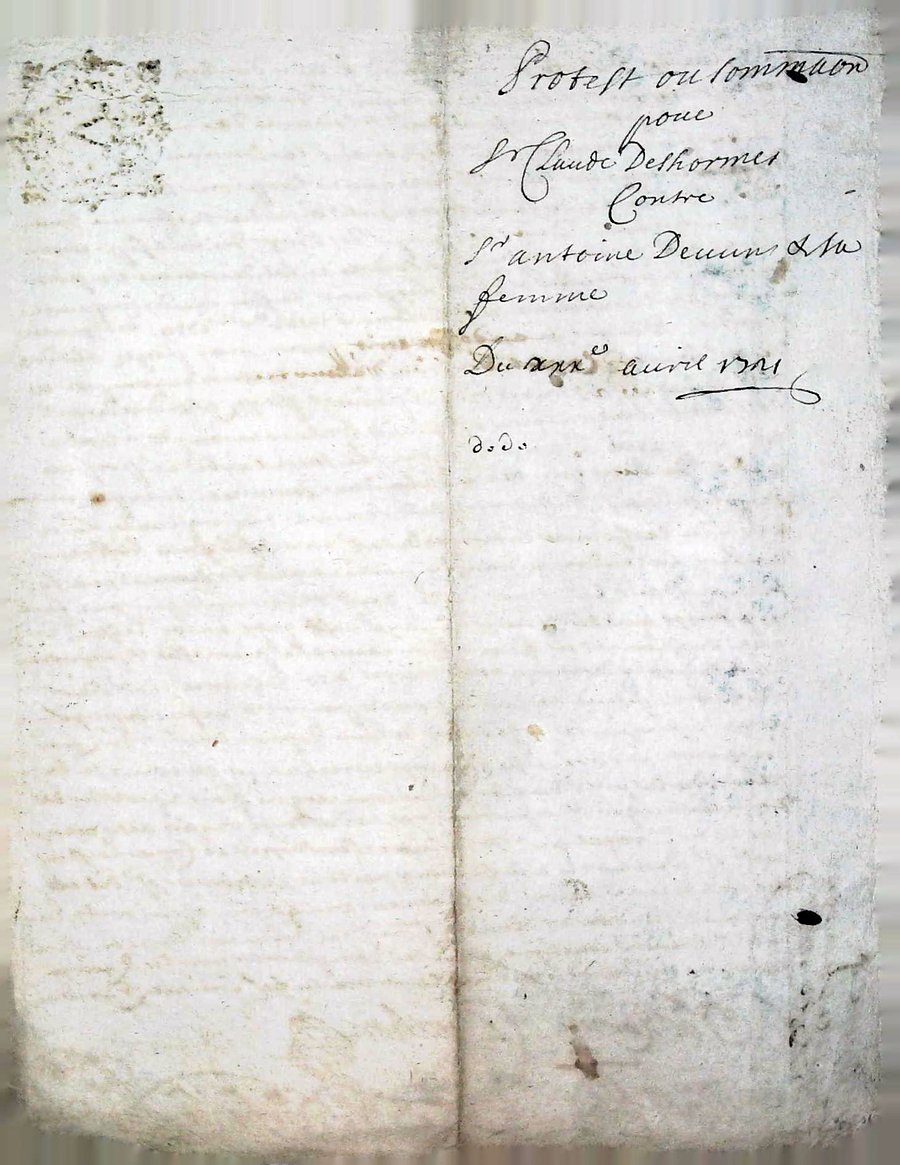 Protest ou sommaon
pour
Sr Claude Deshormes
Contre
Sr antoine Devuns & sa
femme
Du xxxe auril 1701
d.d.